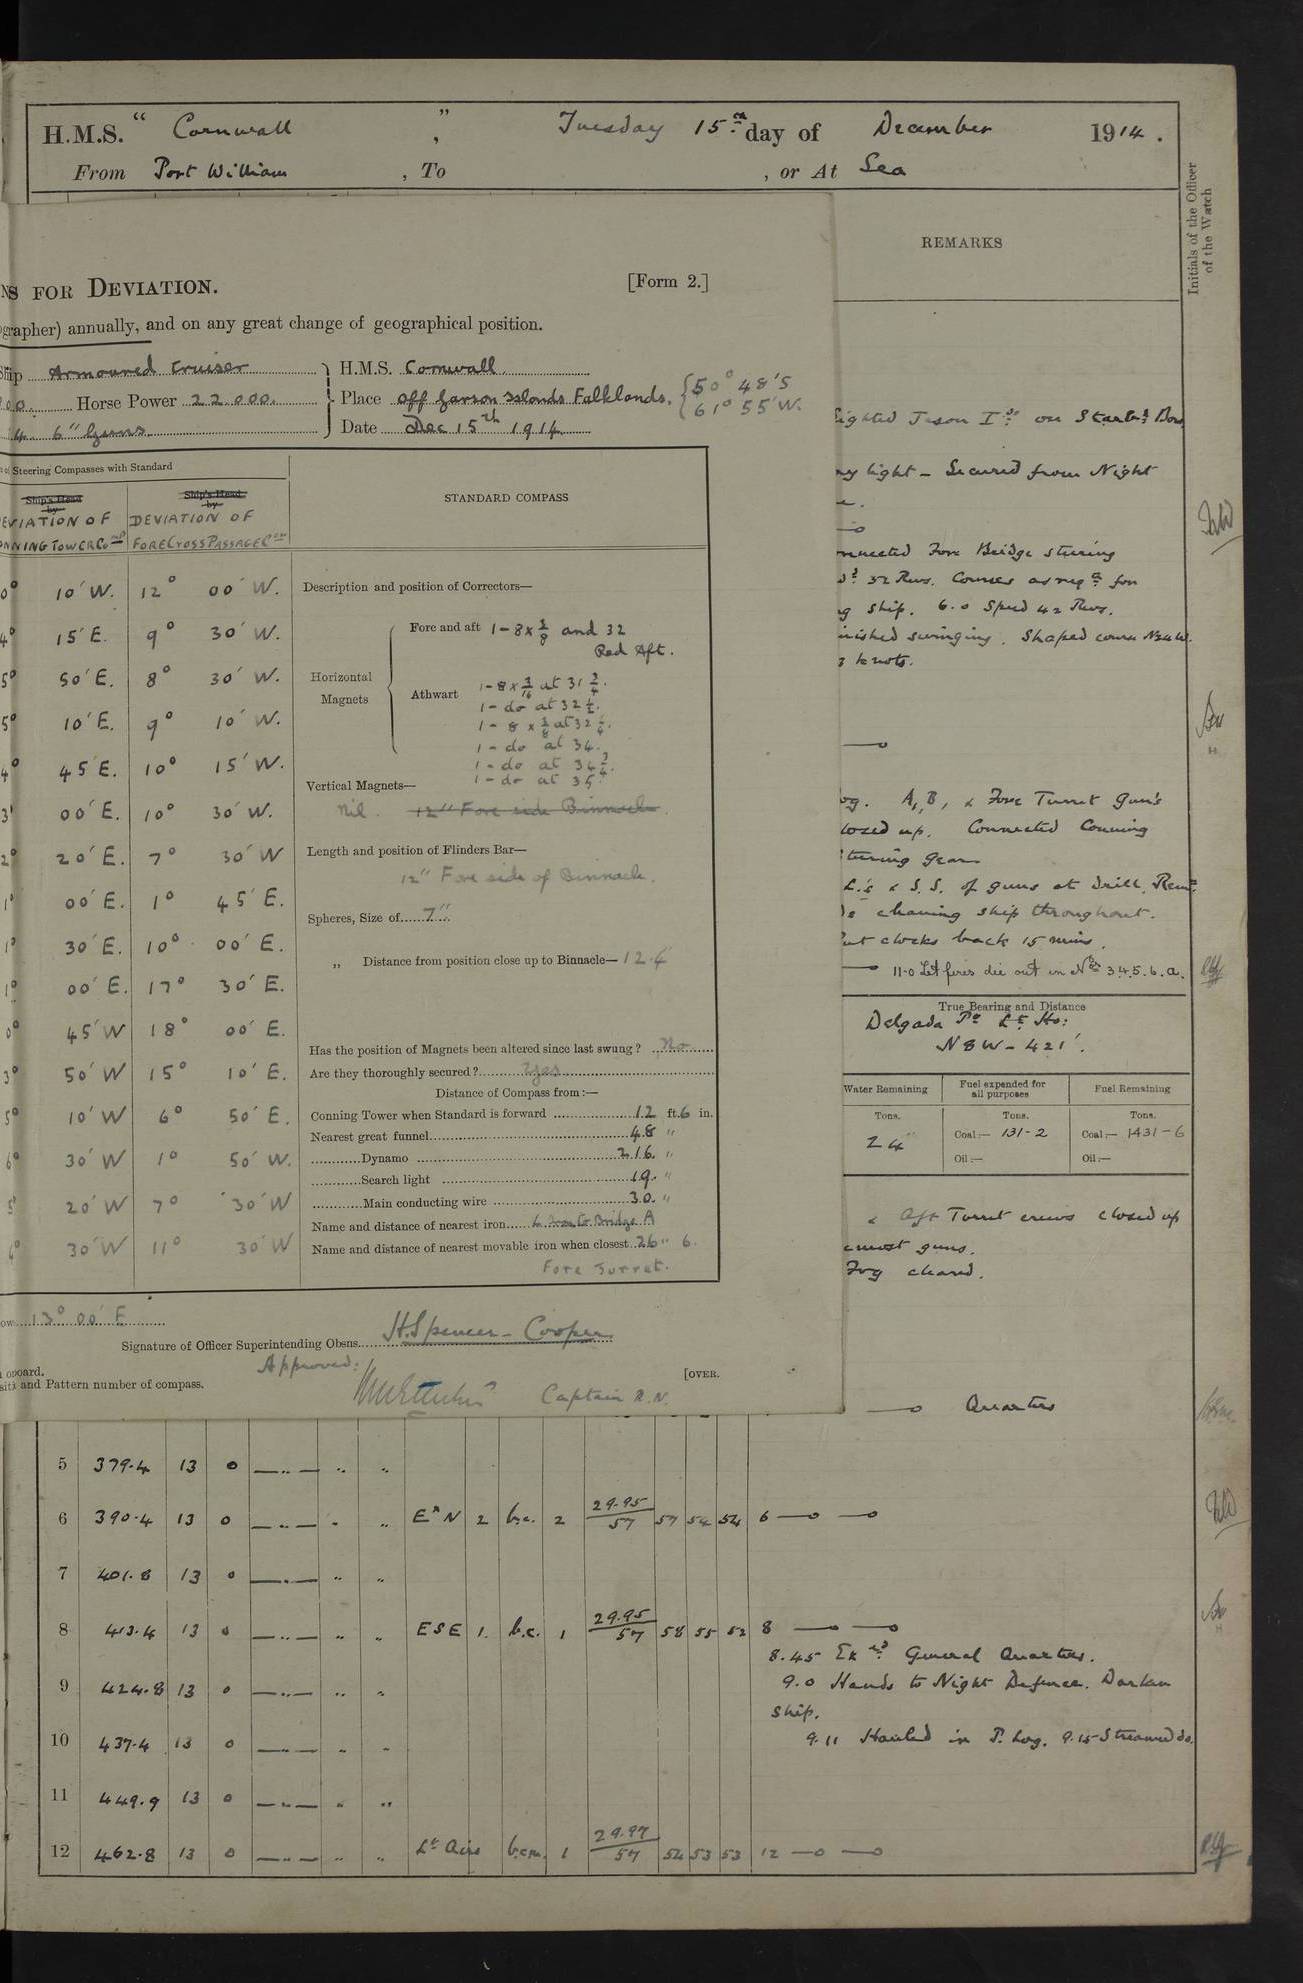 H.M.S. " Cornwall " , Tuesday 15th day of December 1914 .
From Port William , To , or At Sea
Initials of the Officer of the Watch
REMARKS
NS FOR DEVIATION. [Form 2.]
ographer) annually, and on any great change of geographical position.
Ship Armoured Cruiser H.M.S. Cornwall
00. Horse Power 22.000. Place off Jason Islands Falklands. 50° 48' S
61° 55' W.
4 6" Guns Date Dec 15th 1914
of Steering Compasses with Standard
Ship's Head by Ship's Head by
DEVIATION OF DEVIATION OF
CONNING TOWER Comp FORE CROSS PASSAGE Com
STANDARD COMPASS
0° 10' W. 12° 00' W.
4° 15' E. 9° 30' W.
5° 50' E. 8° 30' W.
5° 10' E. 9° 10' W.
4° 45' E. 10° 15' W.
3° 00' E. 10° 30' W.
2° 20' E. 7° 30' W
1° 00' E. 1° 45' E.
1° 30' E. 10° 00' E.
1° 00' E. 17° 30' E.
0° 45' W 18° 00' E.
3° 50' W 15° 10' E.
5° 10' W 6° 50' E.
6° 30' W 1° 50' W.
5° 20' W 7° 30' W
4° 30' W 11° 30' W
Description and position of Correctors—
Horizontal Magnets
Fore and aft 1 - 8 x 3/8 and 32
Red Aft.
Athwart 1 - 8 x 3/16 at 31 3/4.
1 - do at 32 1/2.
1 - 8 x 3/8 at 32 1/4.
1 - do at 34.
1 - do at 34 3/4.
1 - do at 35.
Vertical Magnets—
Nil. 12" Fore side Binnacle.
Length and position of Flinders Bar—
12" Fore side of Binnacle.
Spheres, Size of 7".
" Distance from position close up to Binnacle— 12.4"
Has the position of Magnets been altered since last swung? No
Are they thoroughly secured? Yes
Distance of Compass from:—
Conning Tower when Standard is forward 12 ft. 6 in.
Nearest great funnel 48 "
Dynamo 216. "
Search light 19. "
Main conducting wire 30. "
Name and distance of nearest iron Bridge
Name and distance of nearest movable iron when closest 26" 6.
Fore Turret.
ow 13° 00' E
Signature of Officer Superintending Obsns. H. Spencer-Cooper
n board.
Approved:
siti and Pattern number of compass. [OVER.
Captain R.N.
Sighted Jason Id on Starbd Bow
ny light - Secured from Night
nnected Fore Bridge steering
32 Revs. Courses as reqd for
g ship. 6.0 Speed 42 Revs.
inished swinging. Shaped course N24W.
3 knots.
og. A, B, & Fore Turret Guns
losed up. Connected Conning
teering Gear
L.'s & S.S. of guns at drill. Remr
cleaning ship throughout.
Put clocks back 15 mins.
11-0 Let fires die out in Nos 3.4.5.6.a.
True Bearing and Distance
Delgada Pt Lt Ho:
N8W - 421'.
Water Remaining Fuel expended for all purposes Fuel Remaining
Tons. Tons. Tons.
24 Coal:— 131-2 Coal:— 1431-6
Oil:— Oil:—
& Aft Turret crews closed up
guns.
Fog cleared.
Quarters
5 379.4 13 0
6 390.4 13 0 E x N 2 b.c. 2 29.95/57 57 54 54 6
7 401.8 13 0
8 413.4 13 0 ESE 1. b.c. 1 29.95/57 58 55 52 8
8.45 Exd General Quarters.
9 424.8 13 0 9.0 Hands to Night Defence. Darken
ship.
10 437.4 13 0 9.11 Hauled in P. Log. 9.15 Streamed do.
11 449.9 13 0
12 462.8 13 0 Lt Airs b.c.m. 1 29.97/57 54 53 53 12